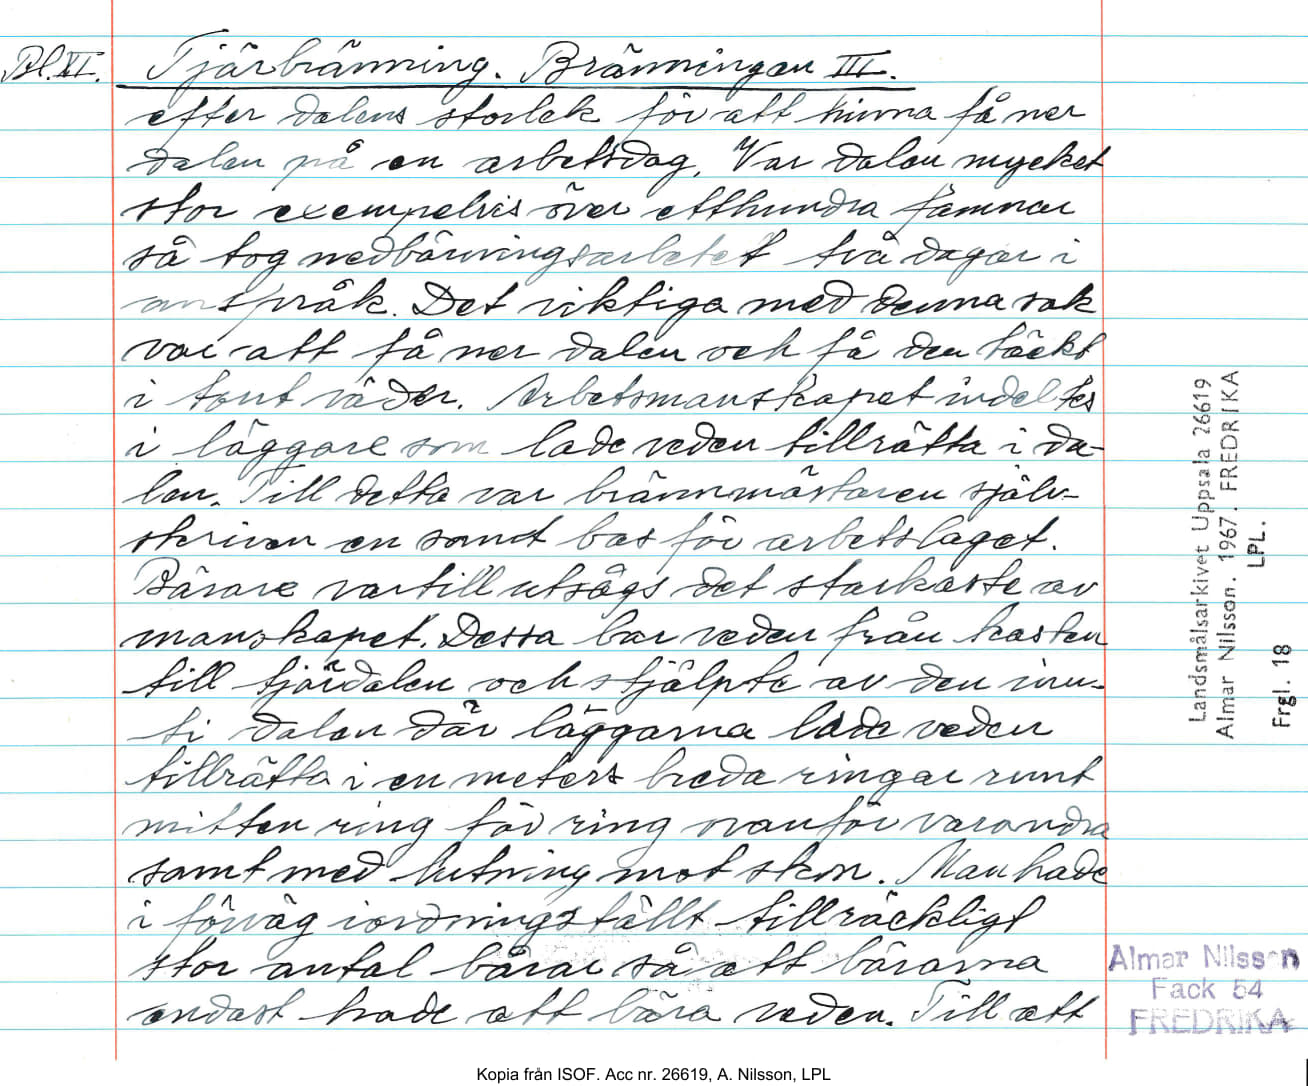 Bl. VI. Tjärbränning. Bränningen III.
efter dalens storlek för att hinna få ner
dalen på en arbetsdag. Var dalen mycket
stor exempelvis över etthundra famnar
så tog nedbärningsarbetet två dagar i
anspråk. Det viktiga med denna sak
var att få ner dalen och få den täckt
i tort väder. Arbetsmanskapet indeltes
i läggare som lade veden tillrätta i da-
len. Till detta var brännmästaren själv-
skriven en somt bas för arbetslaget.
Bärare vartill utsågs det starkaste av
manskapet. Dessa bar veden från kasten
till tjärdalen och stjälpte av den inu-
ti dalen där läggarna lade veden
tillrätta i en meters breda ringar runt
mitten ring för ring ovanför varandra
samt med lutning mot sken. Man hade
i förväg iordningställt tillräckligt
stor antal bårar så att bärarna
endast hade att bära veden. Till att
Landsmålsarkivet Uppsala 26619
Almar Nilsson. 1967. FREDRIKA
LPL.
Frgl. 18
Almar Nilsson
Fack 54
FREDRIKA
Kopia från ISOF. Acc nr. 26619, A. Nilsson, LPL